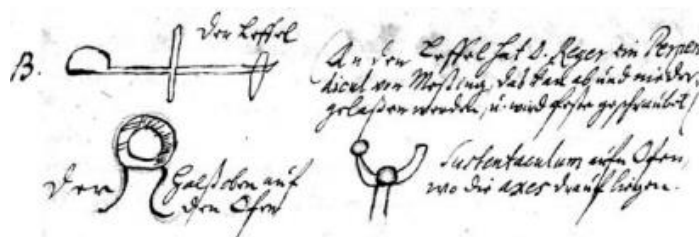 B.
Der Leffel
An den Leffel hat D. Reger ein Perpen
dicul von Meßing, das kan ab und nieder
gelaßen werden, u. wird feste geschraubet
Der Halß oben auf
den Ofen
Sustentaculum aufn Ofen,
wo die axes drauf liegen.